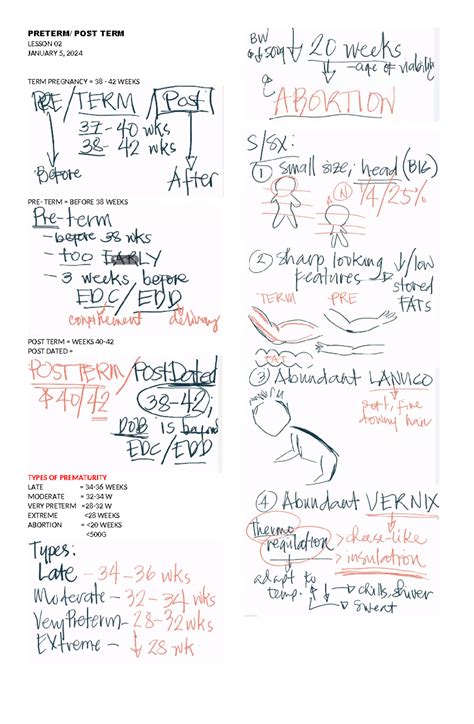 PRETERM/ POST TERM
LESSON 02
JANUARY 5, 2024
TERM PREGNANCY = 38 - 42 WEEKS
PRE/TERM/Post
37-40 wks
38-42 wks
Before
After
PRE- TERM = BEFORE 38 WEEKS
Pre-term
- before 38 wks
- too EARLY
- 3 weeks before
EDC/EDD
confinement delivery
POST TERM = WEEKS 40-42
POST DATED =
POST TERM/Post-Dated
40/42
38-42;
DOB is beyond
EDC/EDD
TYPES OF PREMATURITY
LATE = 34-36 WEEKS
MODERATE = 32-34 W
VERY PRETERM =28-32 W
EXTREME <28 WEEKS
ABORTION = <20 WEEKS
<500G
Types:
Late - 34-36 wks
Moderate - 32-34 wks
Very Preterm - 28-32 wks
EXtreme - ↓ 28 wk
BW
↓500g
↓ 20 weeks
- age of viability
ABORTION
S/SX:
① small size; head (BIG)
N 1/4/25%
② sharp looking
features → ↓/low
stored
FATS
TERM PRE
FAT
③ Abundant LANUGO
soft, fine
downy hair
④ Abundant VERNIX
Thermo
regulation
> cheese-like
> insulation
adapt to
temp.
↓ → chills, shiver
↑ → sweat